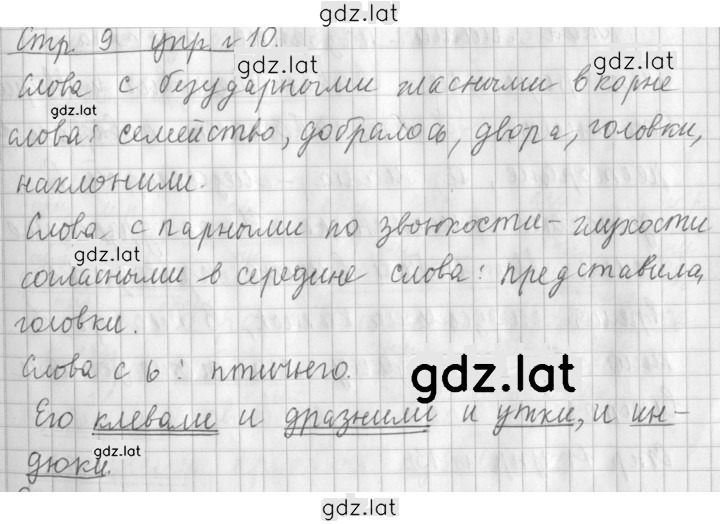 gdz.lat
Стр. 9 упр. 10.
gdz.lat
gdz.lat
Слова с безударными гласными в корне
gdz.lat
слова: семейство, добралось, двора, головки,
наклонили.
Слова с парными по звонкости-глухости
gdz.lat
согласными в середине слова: представила,
головки.
Слова с ь: птичьего.
gdz.lat
Его клевали и дразнили и утки, и ин-
gdz.lat
дюки.
gdz.lat